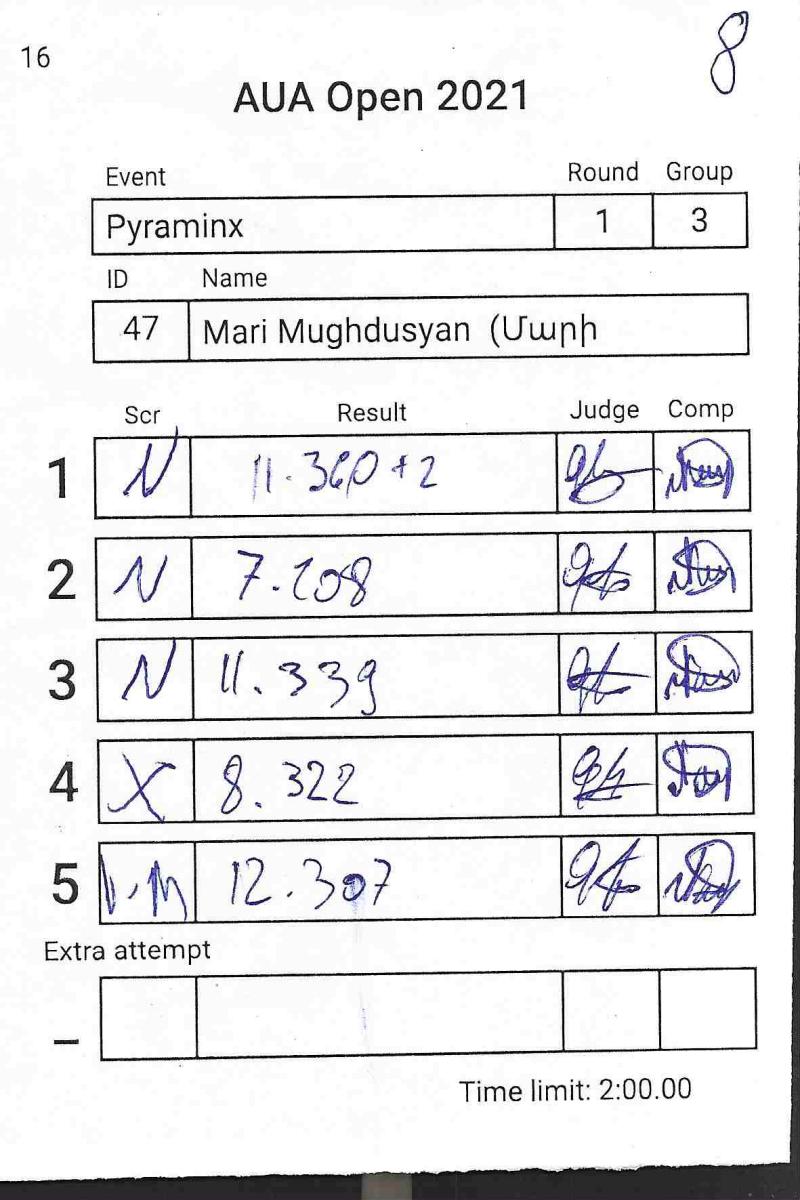 16
8
AUA Open 2021
Event Round Group
Pyraminx 1 3
ID Name
47 Mari Mughdusyan (Մարի
Scr Result Judge Comp
1 N 11.360 + 2
2 N 7.208
3 N 11.339
4 X 8.322
5 12.307
Extra attempt
_
Time limit: 2:00.00